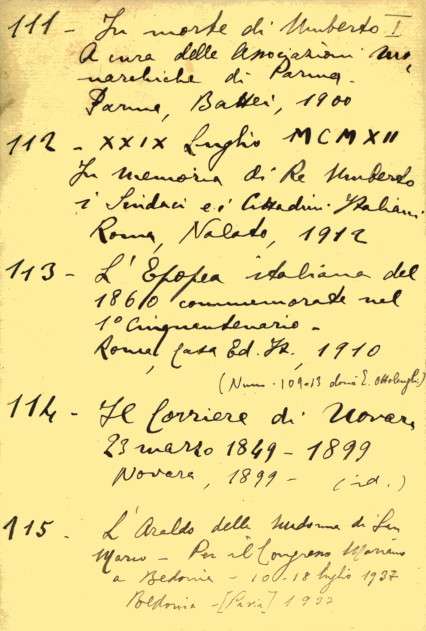 111 - In morte di Umberto I
A cura delle Associazioni mo,
narchiche di Parma.
Parma, Battei, 1900
112 - XXIX Luglio MCMXII
In memoria di Re Umberto
i Sindaci e i Cittadini Italiani
Roma, Nalato, 1912
113 - L'Epopea italiana del
1860 commemorata nel
1° Cinquantenario -
Roma, Casa Ed. It., 1910
(Num. 109-13 dono E. Ottolenghi)
114 - Il Corriere di Novara
23 marzo 1849 - 1899
Novara, 1899 - (id.)
115 - L'Araldo della Madonna di San
Marco - Per il Congresso Mariano
a Bedonia - 10-18 luglio 1937
Bedonia - 1937